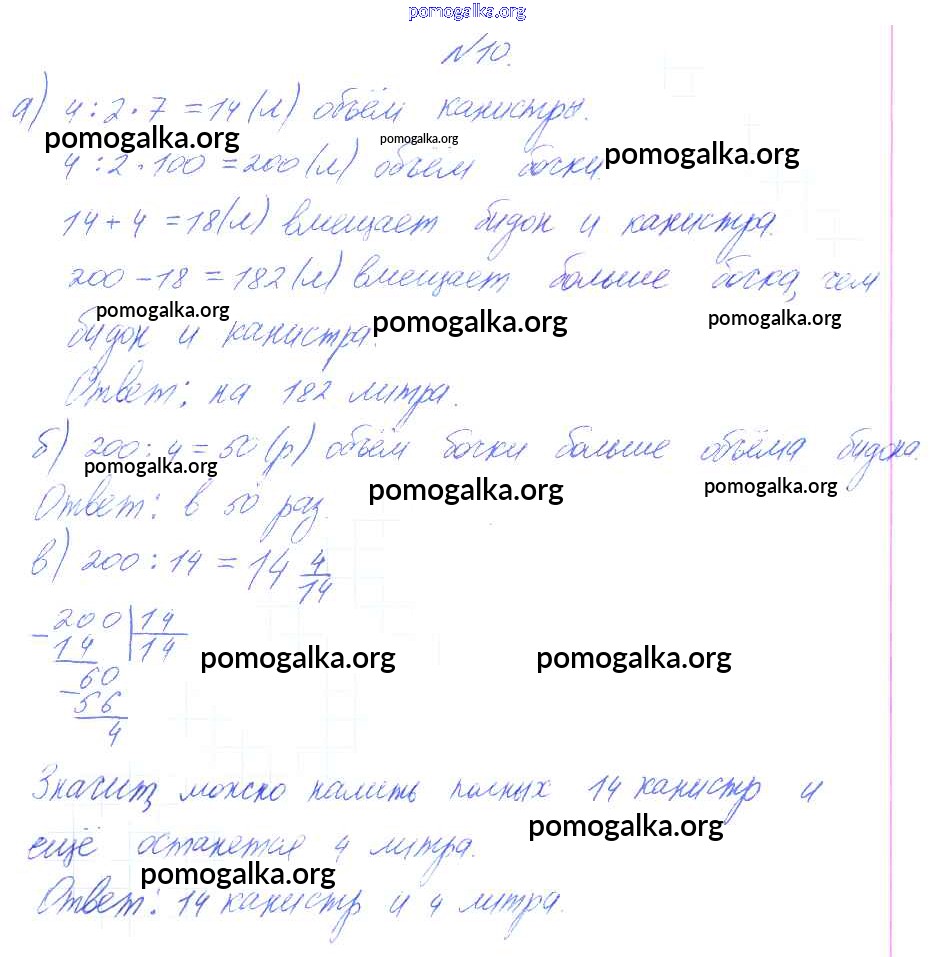 pomogalka.org
№10.
а) 4 : 2 · 7 = 14 (л) объём канистры.
pomogalka.org pomogalka.org pomogalka.org
4 : 2 · 100 = 200 (л) объём бочки.
14 + 4 = 18 (л) вмещает бидон и канистра.
200 – 18 = 182 (л) вмещает больше бочка, чем
pomogalka.org pomogalka.org pomogalka.org
бидон и канистра.
Ответ: на 182 литра.
б) 200 : 4 = 50 (р) объём бочки больше объёма бидона.
pomogalka.org pomogalka.org pomogalka.org
Ответ: в 50 раз.
в) 200 : 14 = 14 4/14
– 200 | 14
14 | 14
– 60
56
4
pomogalka.org pomogalka.org
Значит, можно налить полных 14 канистр и
pomogalka.org
ещё останется 4 литра.
pomogalka.org
Ответ: 14 канистр и 4 литра.